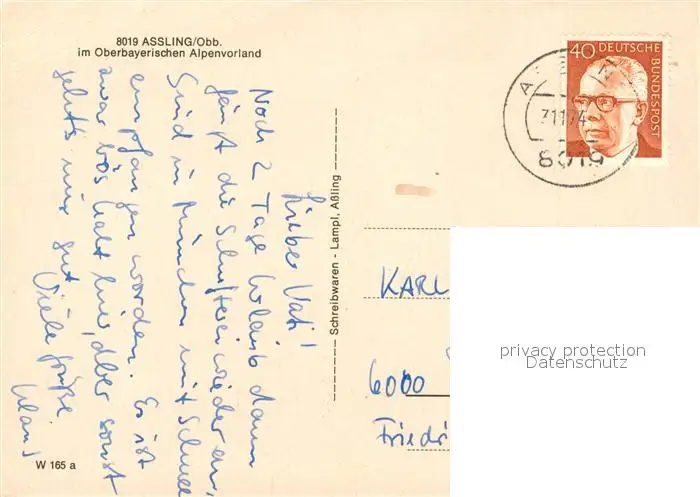 8019 ASSLING/Obb.
im Oberbayerischen Alpenvorland
Lieber Vati!
Noch 2 Tage Urlaub dann
fängt die Schufterei wieder an,
Sind in München mit Schnee
empfangen worden. Es ist
zwar bös kalt hier, aber sonst
geht's mir gut
Viele Grüße
Klaus
W 165 a
Schreibwaren - Lampl, Aßling
40 DEUTSCHE
BUNDESPOST
8019
KARL
6000
Friedri
privacy protection
Datenschutz